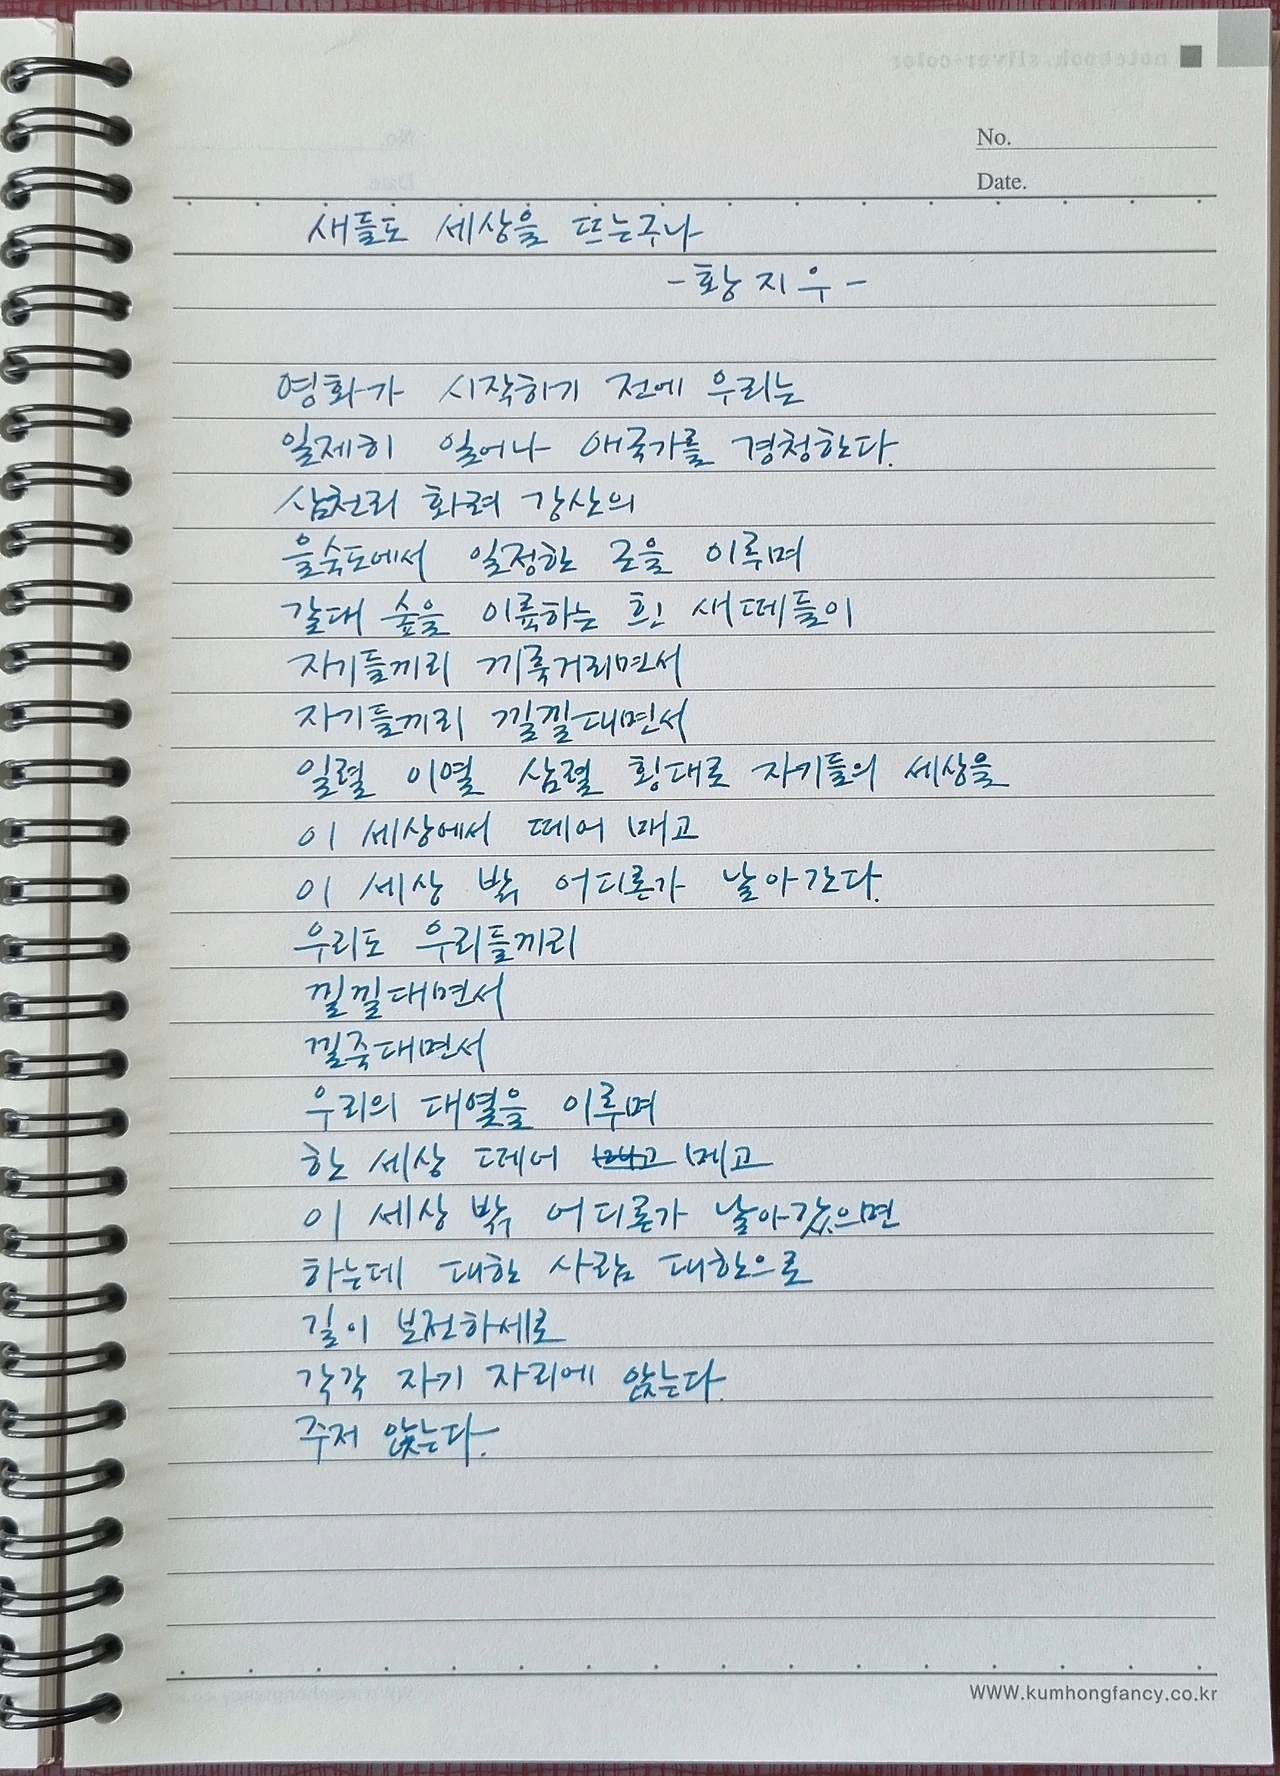 notebook sliver-color
No.
Date.
새들도 세상을 뜨는구나
- 황지우 -
영화가 시작하기 전에 우리는
일제히 일어나 애국가를 경청한다.
삼천리 화려 강산의
을숙도에서 일정한 군을 이루며
갈대 숲을 이륙하는 흰 새떼들이
자기들끼리 끼룩거리면서
자기들끼리 낄낄대면서
일렬 이열 삼렬 횡대로 자기들의 세상을
이 세상에서 떼어 매고
이 세상 밖 어디론가 날아간다.
우리도 우리들끼리
낄낄대면서
낄죽대면서
우리의 대열을 이루며
한 세상 떼어 메고
이 세상 밖 어디론가 날아갔으면
하는데 대한 사람 대한으로
길이 보전하세로
각각 자기 자리에 앉는다.
주저 앉는다.
WWW.kumhongfancy.co.kr